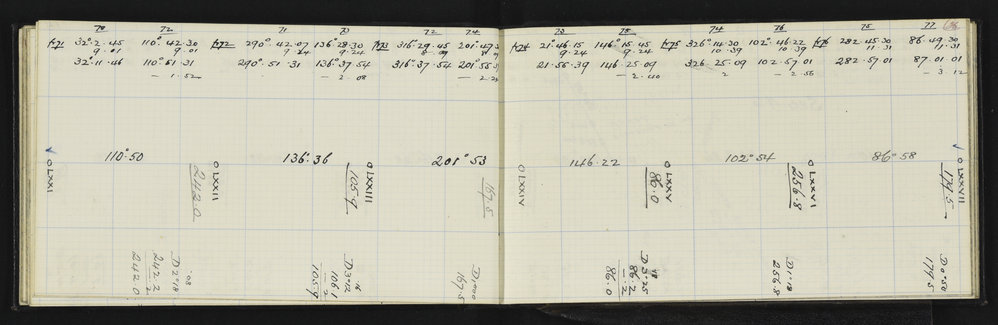 70 72 71 73 72 74
π71 32°. 2'. 45 110°. 42. 30 π72 290° 42. 07 136° 28. 30 π73 316°. 29. 45 201°.
9. 01 9. 01 9. 24 9. 24
32°. 11. 46 110° 51. 31 290°. 51. 31 136° 37. 54 316°. 37. 54 201° 55.
— 1. 52 — 2. 08
110°. 50 136°. 36 201° 53
O LXXI
O LXXII
242.0
O LXXIII
105.9
167.5
D 2°18'
242.2
2
242.0
D 3°12
106.1
2
105.9
167.5
73 75 74 76 75 77
π74 21°. 46. 15 146°. 15. 45 π75 326°. 14. 30 102°. 46. 22 π76 282. 45. 30 86°. 49. 30
9. 24 9. 24 10. 39 10. 39 11. 31 11. 31
21. 55. 39 146. 25. 09 326. 25. 09 102. 57. 01 282. 57. 01 87. 01. 01
— 2. 40 2 — 2. 55 — 3. 12
146. 22 102°. 54 86°. 58
O LXXIV
O LXXV
86.0
O LXXVI
256.8
O LXXVIII
179.5
D 3°.25
86.2
— 2
86.0
D 1.19
256.8
D 0°50
179.5